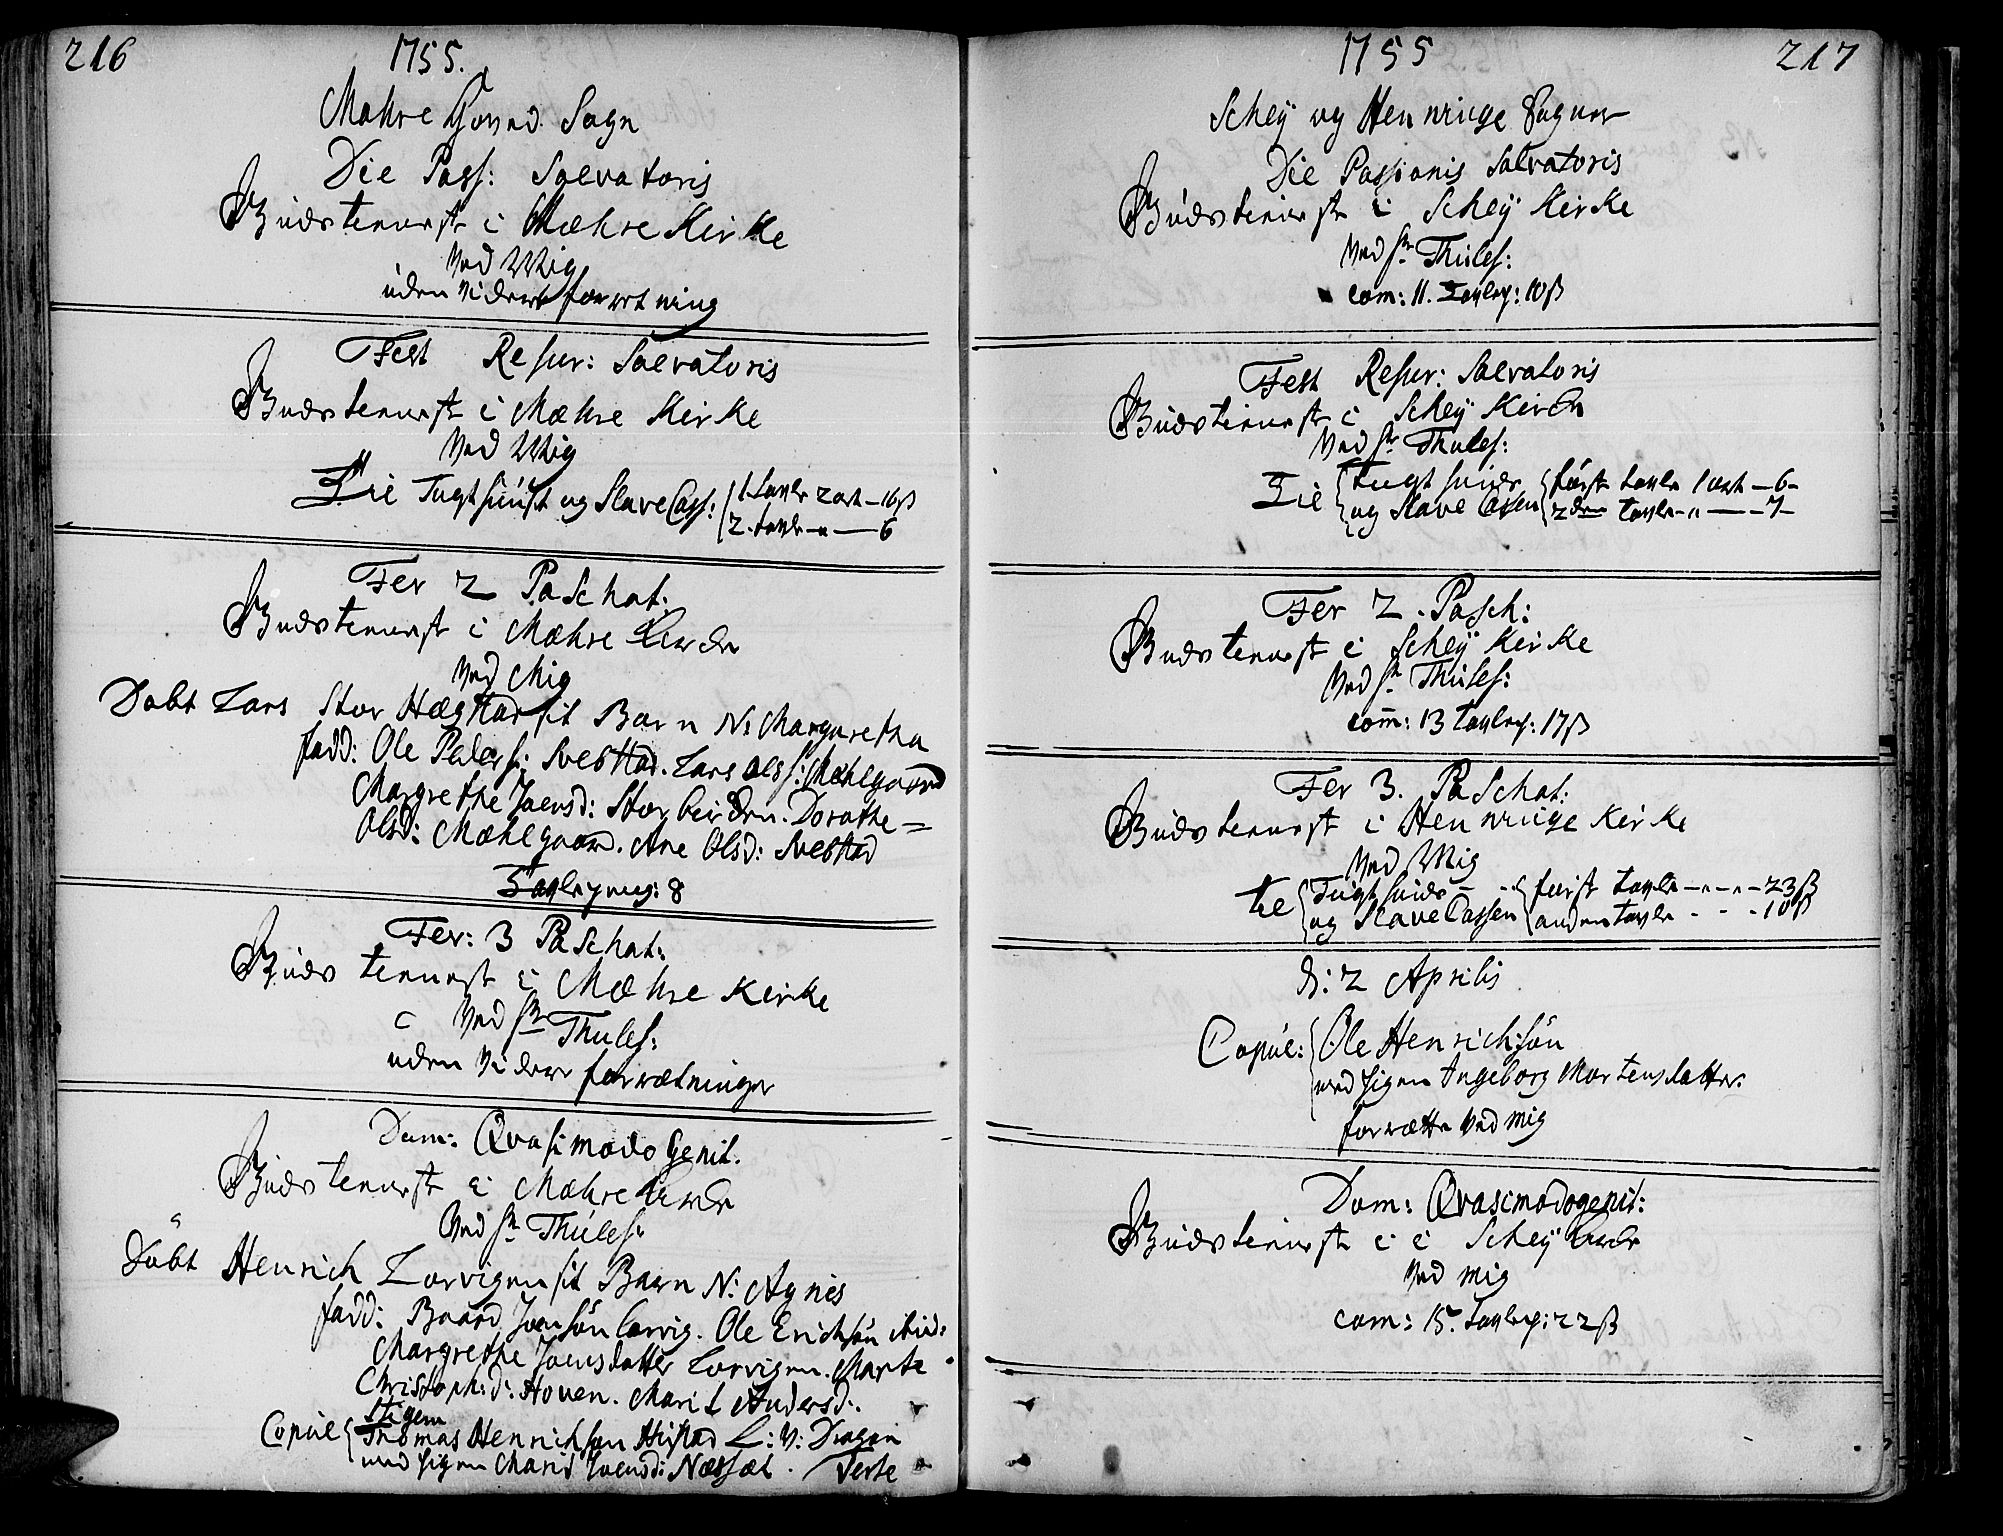 216
1755.
Mæhre Hoved Sogn
Die Pass: Salvatoris
Gudstienest i Mæhre Kirke
Ved Mig
uden videre forretning
Fest Resur: Salvatoris
Gudstienest i Mæhre Kirke
Ved Mig
Til Tugthuust og Slave Cass: 1. tavle 2 ort - 16 ß
2. tavle - " - 6
Fer 2 Paschat:
Gudstienest i Mæhre Kirche
Ved Mig
Døbt Lars Stor Hægstad sit Barn N: Margaretha
fadd: Ole Peders: Svebstad. Lars Ols: Mæhlgaard
Margrethe Joensd: Storleirden. Dorothe =
Olsd: Mæhlgaard. Ane Olsd: Svebstad
Tavlepeng: 8
Fer: 3 Paschat:
Gudstienest i Mæhre Kirke
Ved Sr Thules:
uden videre forrætninger
Dom: Qvasimodo Genit.
Gudstienest i Mæhre Kirche
Ved Sr Thules:
Døbt Henrich Lorvigen sit Barn N: Agnes
fadd: Baard Joensøn Lorvig. Ole Erichsøn ibid:
Margrethe Joensdatter Lorvigen. Marte
Christoph: d: Hoven. Marit Andersd:
Stigem
Copul: Thomas Henrichsøn Hustad L: V: Dragon
med pigen Marit Joensd: Næssæt.
217
1755
Schey og Henninge Sogner
Die Passionis Salvatoris
Gudstienest i Schey Kirke
Ved Sr Thules:
com: 11. Tavlep: 10 ß
Fest Resur: Salvatoris
Gudstienest i Schey Kirche
Ved Sr Thules:
Til Tugthuuset første tavle 1 ort - 6 -
og Slave Cassen 2den tavle - " - 7 -
Fer 2. Pasch:
Gudstienest i Schey Kirke
Ved Sr Thules:
com: 13 tavlep: 17 ß
Fer 3. Paschat:
Gudstienest i Henninge Kirke
Ved Mig
til Tugthuuset første tavle - " - " - 23 ß
og Slave Cassen anden tavle - - - 10 ß
d: 2 Aprilis
Copul: Ole Henrichsøn
med pigen Ingeborg Mortensdatter:
forrætte ved mig
Dom: Qvasimodogenit:
Gudstienest i i Schey Kirche
Ved mig
com: 15. Tavlep: 22 ß